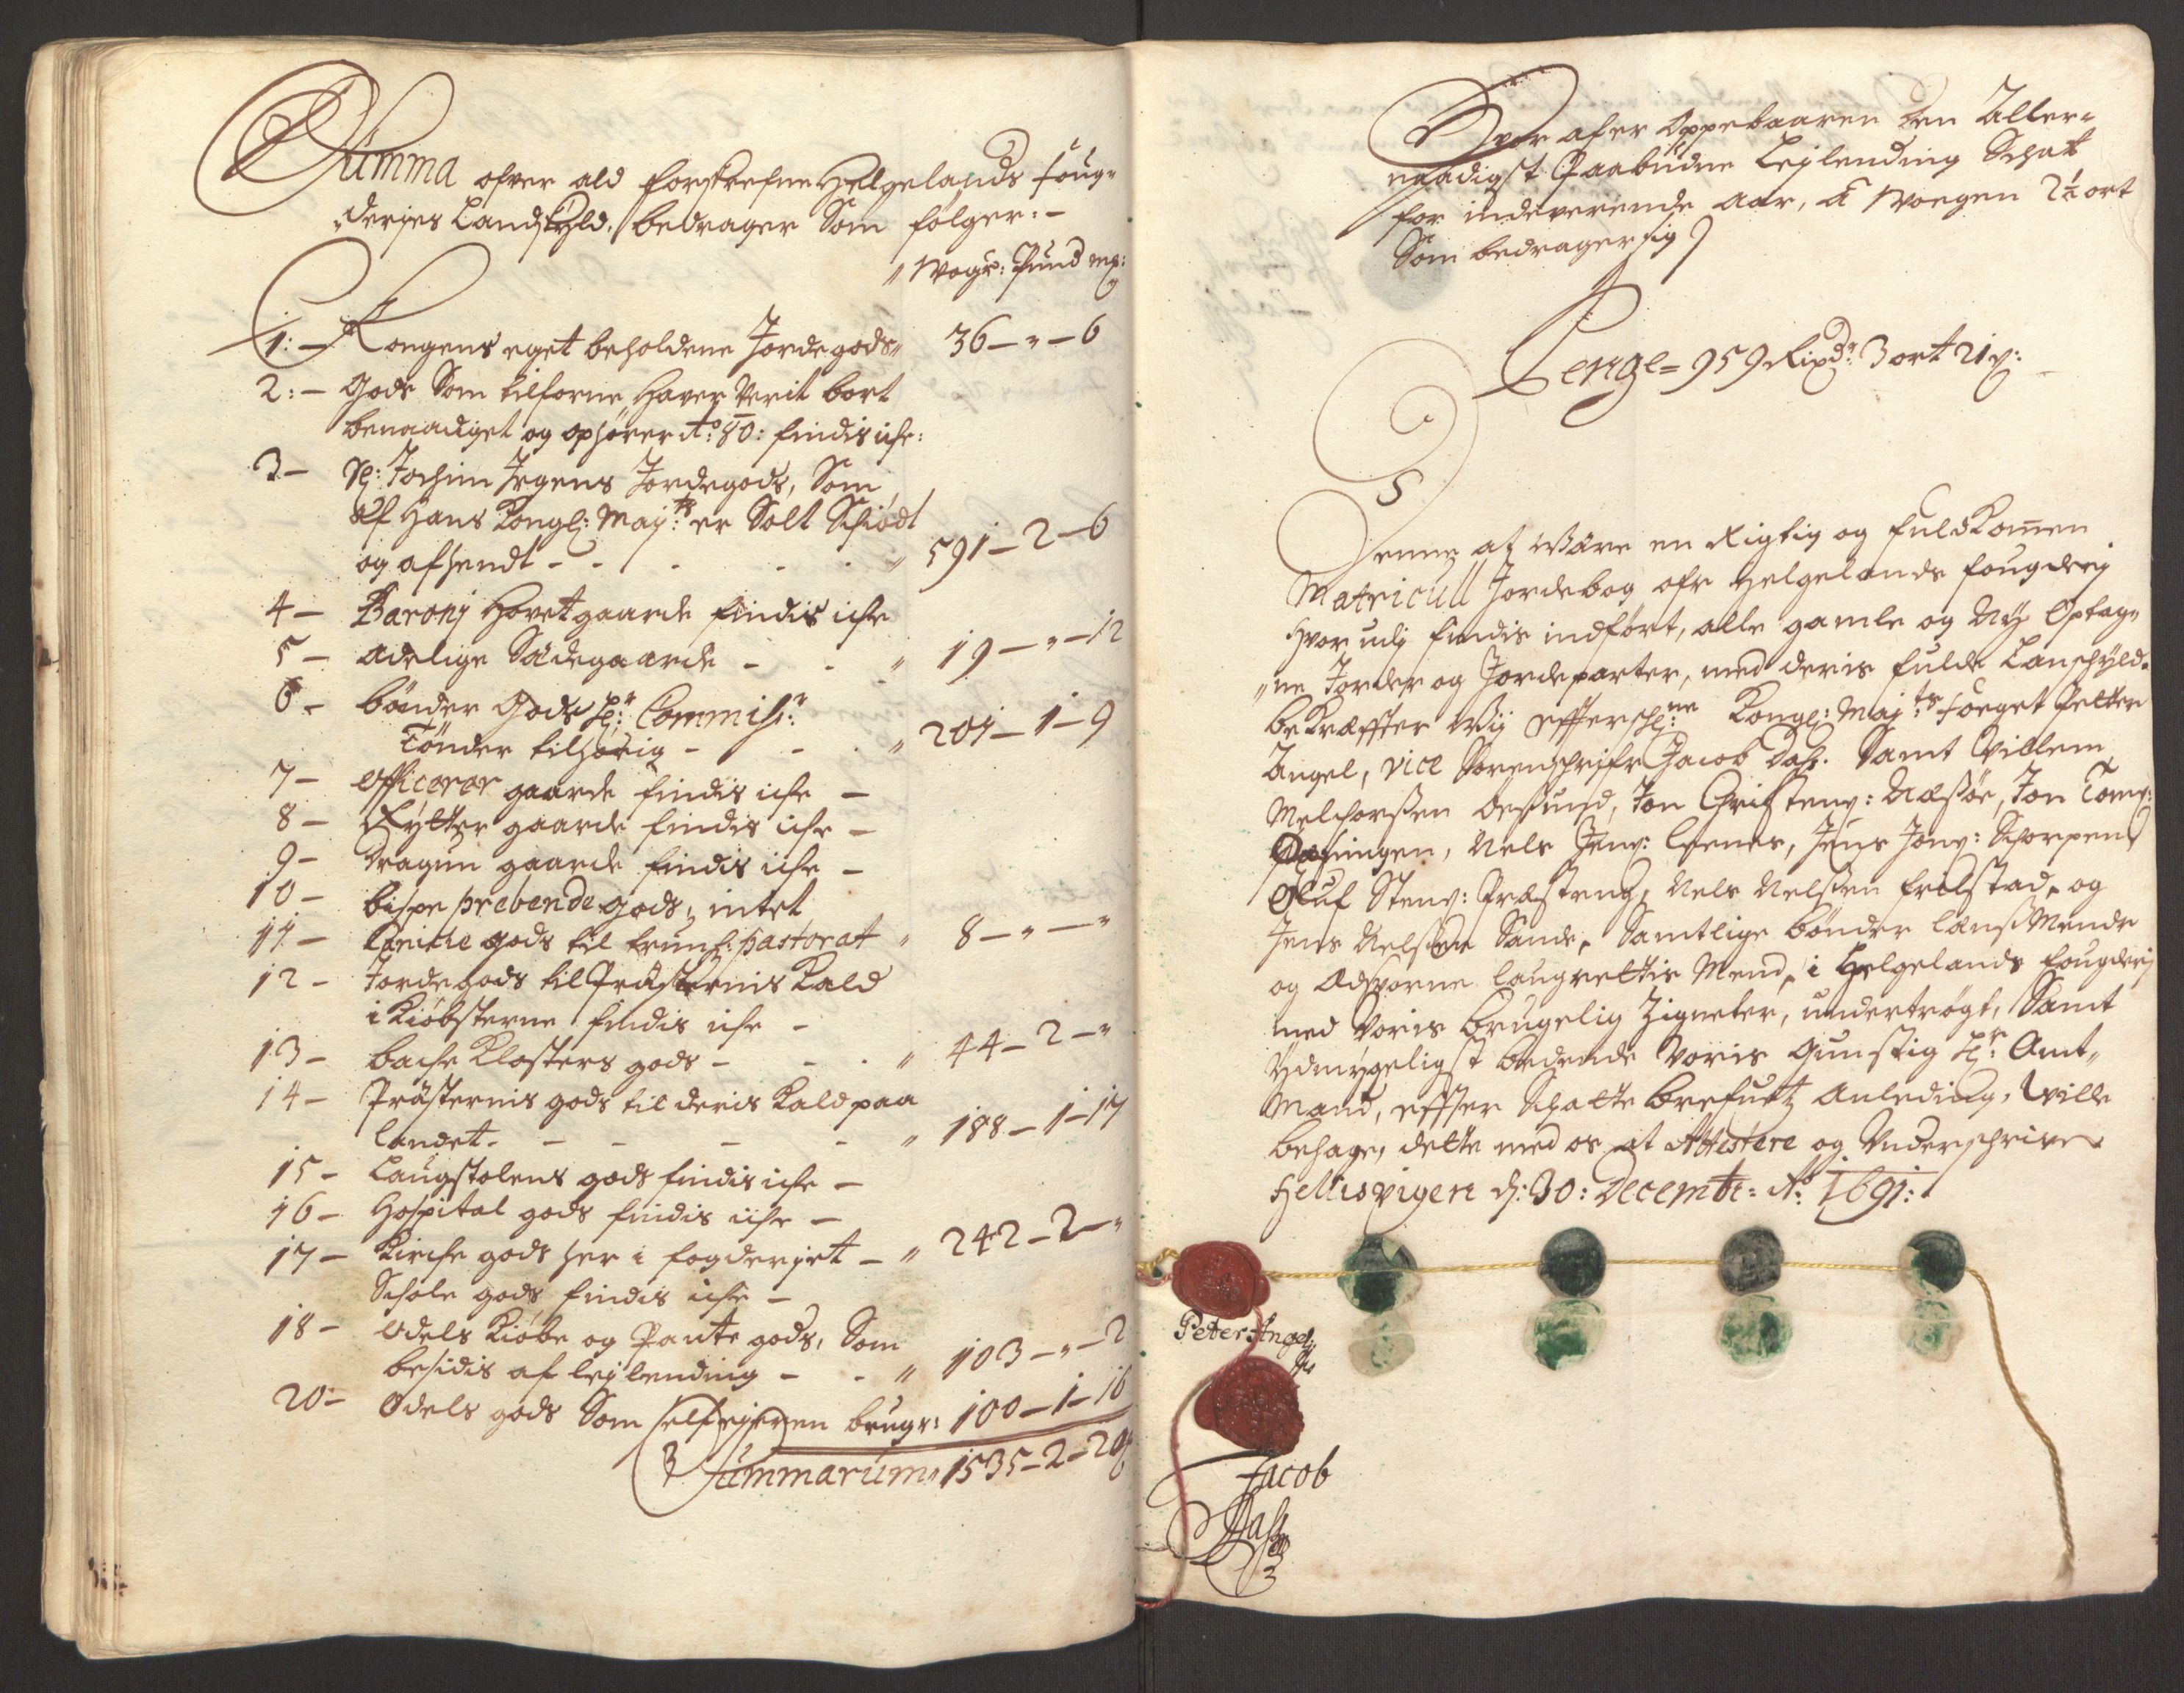 Summa ofver ald forskrefne Helgelands foug-
deries Landskyld, bedrager Som følger:-
" Wogr: Pund mk:
1: - Kongens eget beholdene Jordegods " 36 - " - 6
2: - Gods Som tilforne haver Verit bort
benaadiget og ophører Ao: 80: findis iche:
3 - Sl: Jochim Irgens Jordegods, Som
af Hans Kongl: Mayts: er Solt Schiødt
og afhendt - - - - - " 591 - 2 - 6
4 - Baroni Hovetgaarde findis iche
5 - Adelige Sædegaarde - - " 19 - " - 12
6 - bønder Gods Hr: Commiss:r
Tønder tilhørig - - - " 201 - 1 - 9
7 - Officerer gaarde findis iche -
8 - Rytter gaarde findis iche -
9 - Dragun gaarde findis iche -
10 - bispe prebende gods, intet
11 - gods til trunh: pastorat " 8 - " - "
12 - Jordegods til Præsternis Kald
i Kiøbsterne findis iche -
13 - bache Klosters gods - - " 44 - 2 - "
14 - Præsternis gods til deris Kald paa
landet - - - - - " 188 - 1 - 17
15 - Laugstolens gods findis iche -
16 - Hospital gods findis iche -
17 - Kirche gods her i fogderiet - " 242 - 2 - "
Schole gods findis iche -
18 - Odels Kiøbe og Pante gods, Som
besidis af lejlending - - " 103 - " - 2
20 - Odels gods Som selfejeren brugr: 100 - 1 - 16
Summarum " 1535 - 2 - 20
Hvor af er Oppebaaren den Aller-
naadigst Paabudne Lejlending Schatt
for indeverende aar, á Woegen 2½ ort
Som bedrager sig
Penge = 959 Rixdr: 3 ort 21 s:
Denne at Være en Rigtig og fuldkomen
Matricull Jordebog ofr Helgelands fougderj
Hvor udj findis indført, alle gamle og Ny Optag-
"ne Jorder og Jordeparter, med deris fulde Lanschyld.
bekræffter Wij effterschr:ne Kongl: Mayts: foeget Petter
Angel, vice Sorenschrifr Jacob Dass. Samt Villem
Melchorsen Øesund, Jon Christens: Næssøe, Jon Toms:
Nels Jens: Leenes, Jens Jons: Schorpen
Oluf Stens: Præsteng, Nels Nelssen frilstad, og
Jens Nelssen Sande, Samtlige bønder Lens Mende
og Adsorne laugrettis Mend, i Helgelands fougderj
med Voris brugelig Zigneter, undertrøgt, Samt
Ydmygeligst bedende Voris Gunstig Hr: Amt-
Mand, effter Schatte brefuetz Anleding, Wille
behage, dette med os at Attestere og Underschrive.
Hellisvigen d: 30: Decembr: Ao: 1691:
Peter Angel
Jacob
Dass